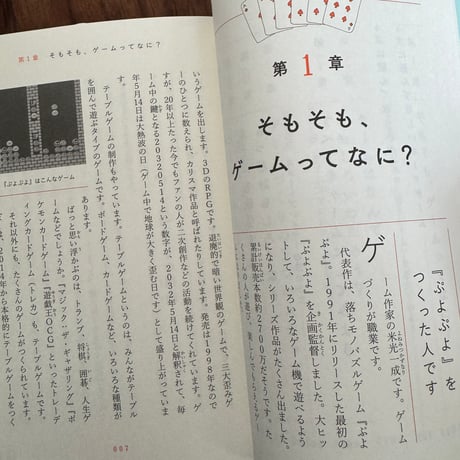 第1章
そもそも、
ゲームってなに?
『ぷよぷよ』を
つくった人です
ゲーム作家の米光一成です。ゲーム
よねみつかずなり
づくりが職業です。
代表作は、落ちモノパズルゲーム『ぷよ
ぷよ』。1991年にリリースした最初の
『ぷよぷよ』を企画監督しました。大ヒッ
トして、いろいろなゲーム機で遊べるよう
になり、シリーズ作品がたくさん出ました。
累計販売本数約2700万だそうです。た
くさんの人が遊び、
第1章 そもそも、ゲームってなに?
いうゲームを出します。3DのRPGです。退廃的で暗い世界観のゲームで、三大歪みゲ
たいはいてき
ームのひとつに数えられ、カリスマ作品と呼ばれたりしています。発売は1998年なので
すが、20年以上たった今でもファンの人が二次創作などの活動を続けてくれています。ゲ
ーム中の鍵となる20320514という数字が、2032年5月14日と解釈されて、毎
かぎ
年5月14日は大熱波の日(ゲーム中で地球が大きく歪む日です)として盛り上がっていま
す。
テーブルゲームの制作もやっています。テーブルゲームというのは、みんながテーブル
を囲んで遊ぶタイプのゲームです。ボードゲーム、カードゲームなど、いろいろな種類が
あります。
ぱっと思い浮かぶのは、トランプ、将棋、囲碁、人生ゲ
ームなどでしょうか。『マジック:ザ・ギャザリング』『ポ
ケモンカードゲーム』『遊戯王OCG』といったトレーデ
ィングカードゲーム(トレカ)も、テーブルゲームです。
それ以外にも、たくさんのゲームがつくられています。
は、2014年から本格的にテーブルゲームをつく
『ぷよぷよ』はこんなゲーム
007